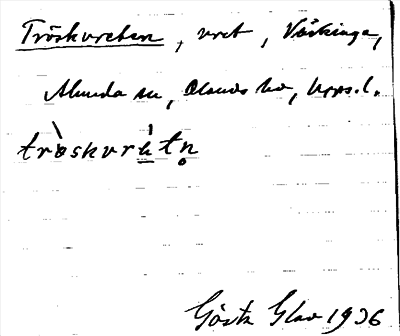 Tröskvreten, vret, Väskinge,
Alunda sn, Olands hd, Upps. l.
trö̀skvrétn̥
Gösta Glav 1936